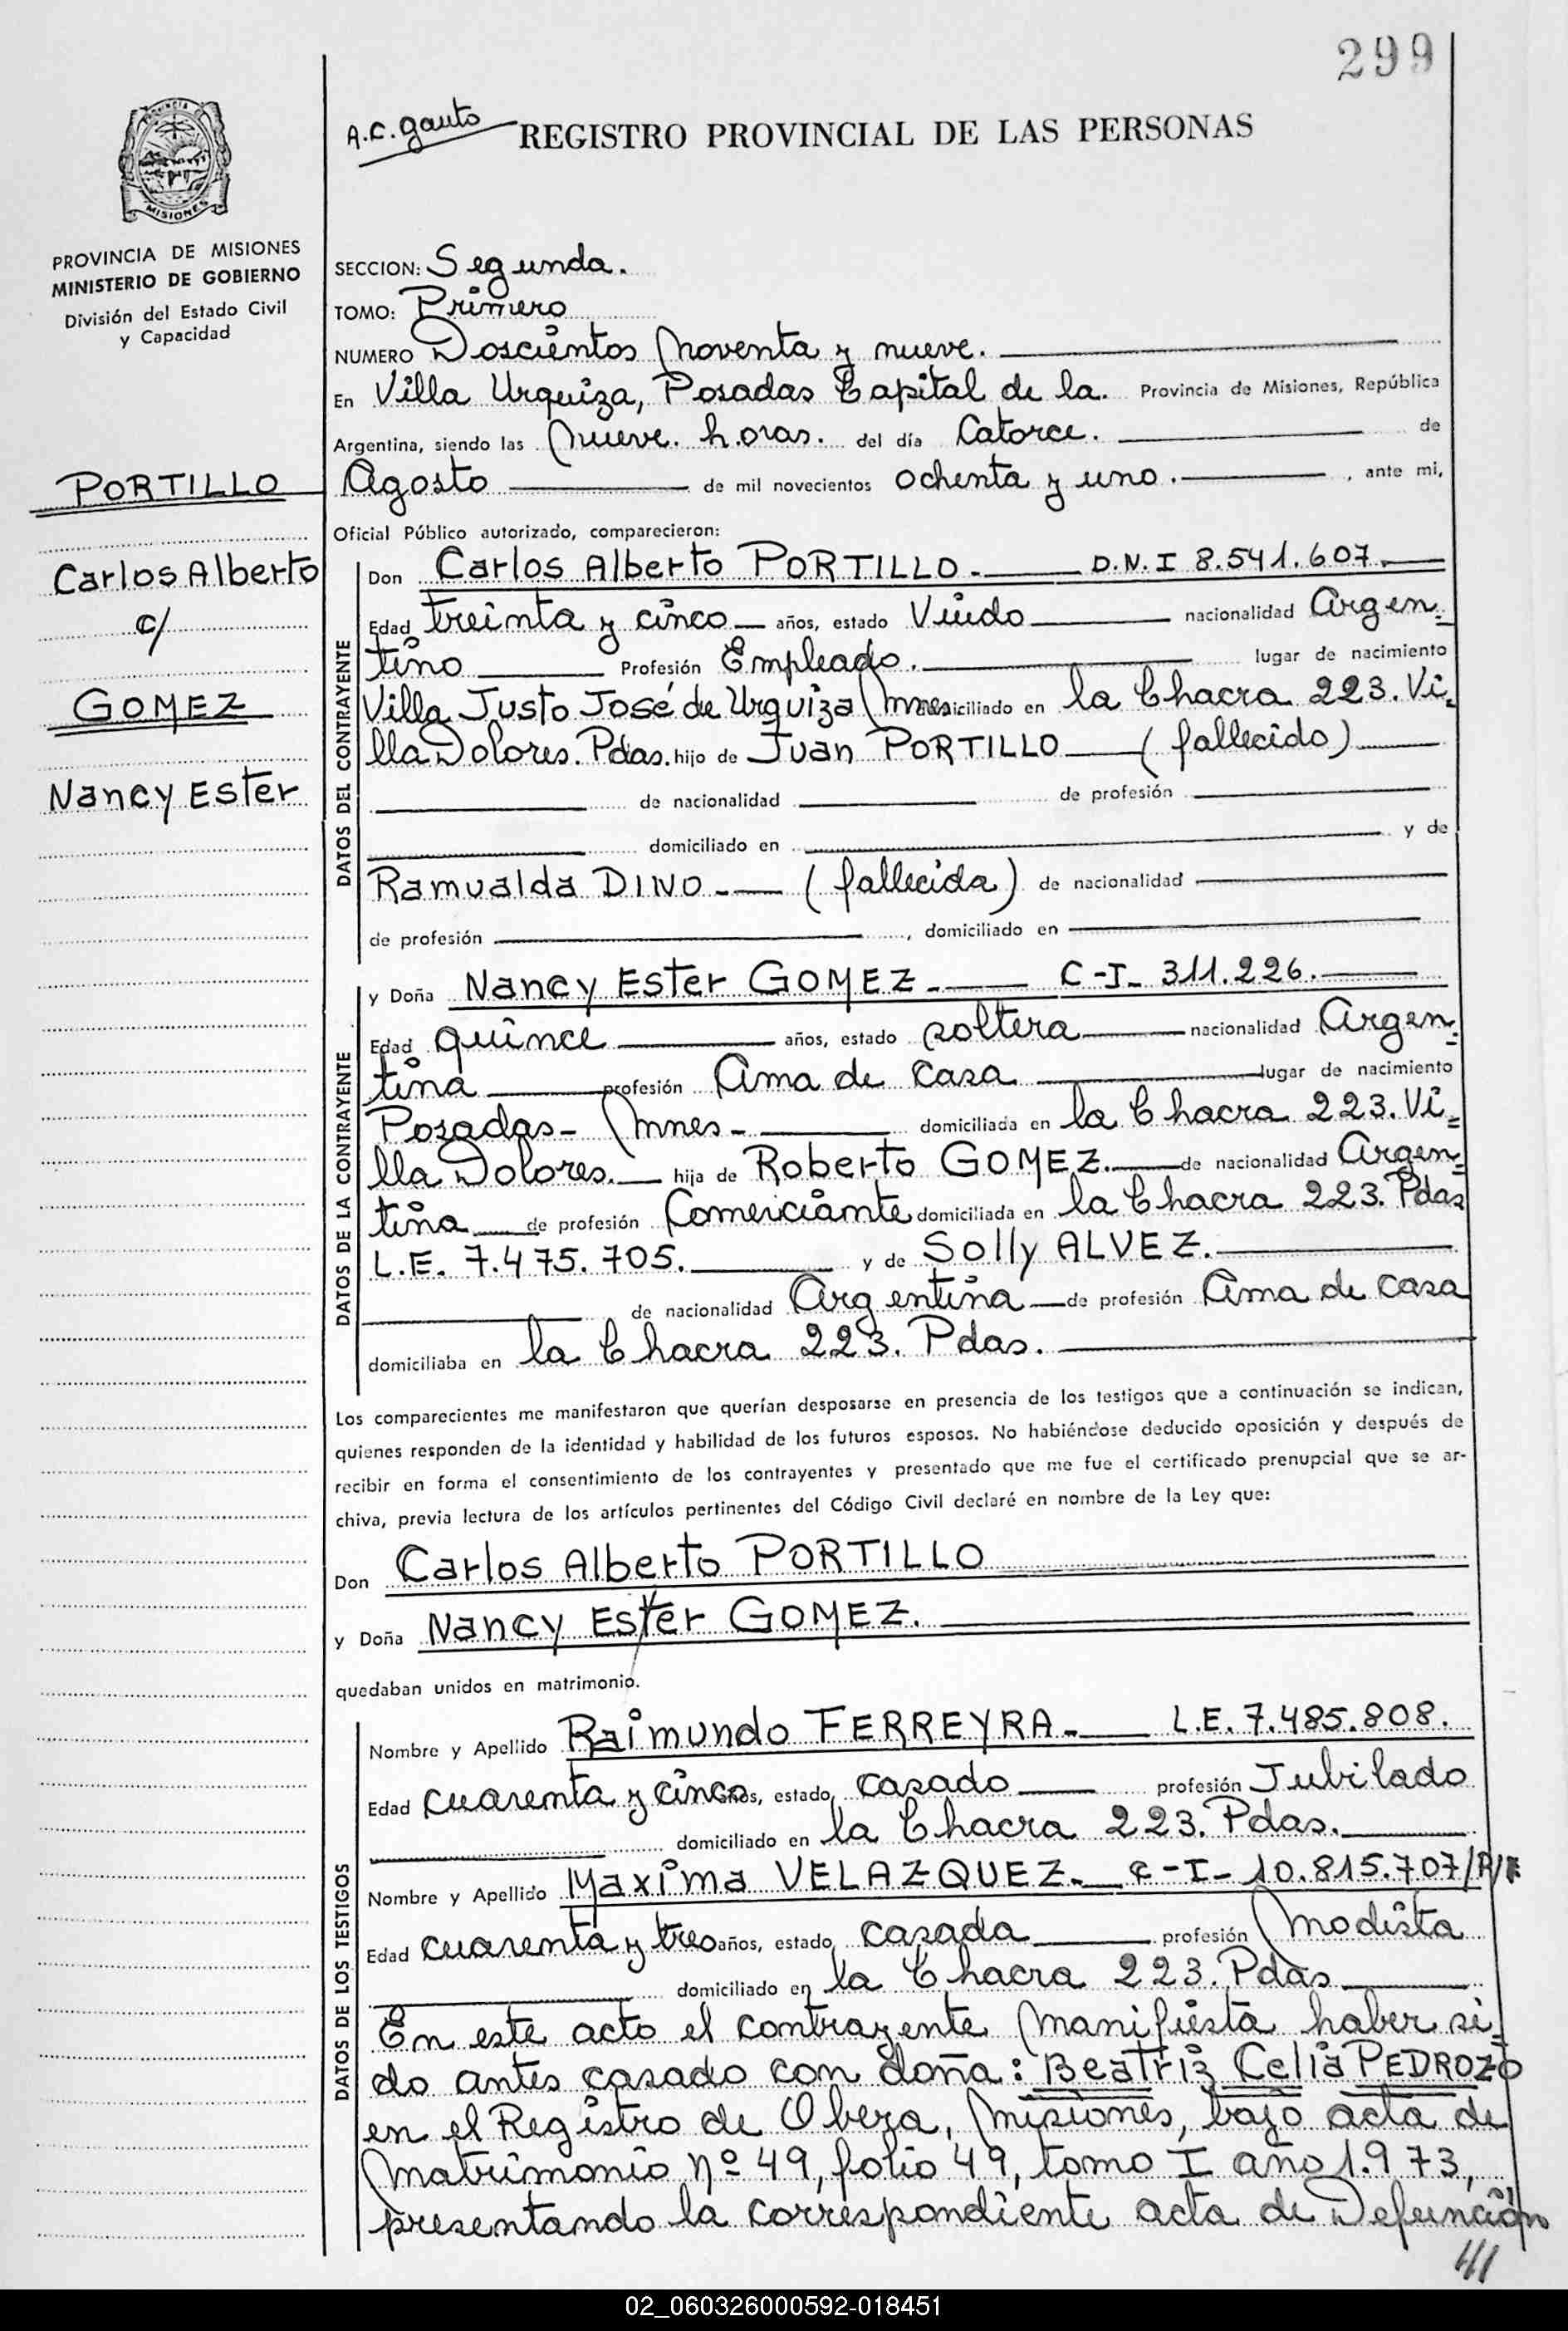 299
A.C. Gauto
REGISTRO PROVINCIAL DE LAS PERSONAS
PROVINCIA
MISIONES
PROVINCIA DE MISIONES
MINISTERIO DE GOBIERNO
División del Estado Civil
y Capacidad
PORTILLO
Carlos Alberto
c/
GOMEZ
Nancy Ester
SECCION: Segunda.
TOMO: Primero
NUMERO Doscientos Noventa y nueve.
En Villa Urquiza, Posadas Capital de la. Provincia de Misiones, República
Argentina, siendo las Nueve. horas. del día Catorce. de
Agosto de mil novecientos ochenta y uno. , ante mi,
Oficial Público autorizado, comparecieron:
DATOS DEL CONTRAYENTE
Don Carlos Alberto PORTILLO.- D.N.I 8.541.607.
Edad treinta y cinco años, estado Viudo nacionalidad Argen=
tino Profesión Empleado. lugar de nacimiento
Villa Justo José de Urquiza Mnes domiciliado en la Chacra 223. Vi=
lla Dolores. Pdas. hijo de Juan PORTILLO (fallecido)
de nacionalidad de profesión
domiciliado en y de
Ramualda DINO.- (fallecida) de nacionalidad
de profesión , domiciliado en
DATOS DE LA CONTRAYENTE
y Doña Nancy Ester GOMEZ.- C-I- 311.226.
Edad quince años, estado soltera nacionalidad Argen=
tina profesión Ama de casa lugar de nacimiento
Posadas- Mnes- domiciliada en la Chacra 223. Vi=
lla Dolores. hija de Roberto GOMEZ. de nacionalidad Argen=
tina de profesión Comerciante domiciliada en la Chacra 223. Pdas
L.E. 7.475.705. y de Solly ALVEZ.
de nacionalidad Argentina de profesión Ama de casa
domiciliaba en la Chacra 223. Pdas.
Los comparecientes me manifestaron que querían desposarse en presencia de los testigos que a continuación se indican,
quienes responden de la identidad y habilidad de los futuros esposos. No habiéndose deducido oposición y después de
recibir en forma el consentimiento de los contrayentes y presentado que me fue el certificado prenupcial que se ar-
chiva, previa lectura de los artículos pertinentes del Código Civil declaré en nombre de la Ley que:
Don Carlos Alberto PORTILLO
y Doña Nancy Ester GOMEZ.
quedaban unidos en matrimonio.
DATOS DE LOS TESTIGOS
Nombre y Apellido Raimundo FERREYRA.- L.E. 7.485.808.
Edad cuarenta y cinco años, estado casado profesión Jubilado
domiciliado en la Chacra 223. Pdas.
Nombre y Apellido Maxima VELAZQUEZ.- C-I- 10.815.707/R/
Edad cuarenta y tres años, estado casada profesión Modista
domiciliado en la Chacra 223. Pdas
En este acto el contrayente manifiesta haber si=
do antes casado con doña: Beatriz Celia PEDROZO
en el Registro de Obera, Misiones, bajo acta de
Matrimonio nº 49, folio 49, tomo I año 1.973,
presentando la correspondiente acta de Defunción
///
02_060326000592-018451